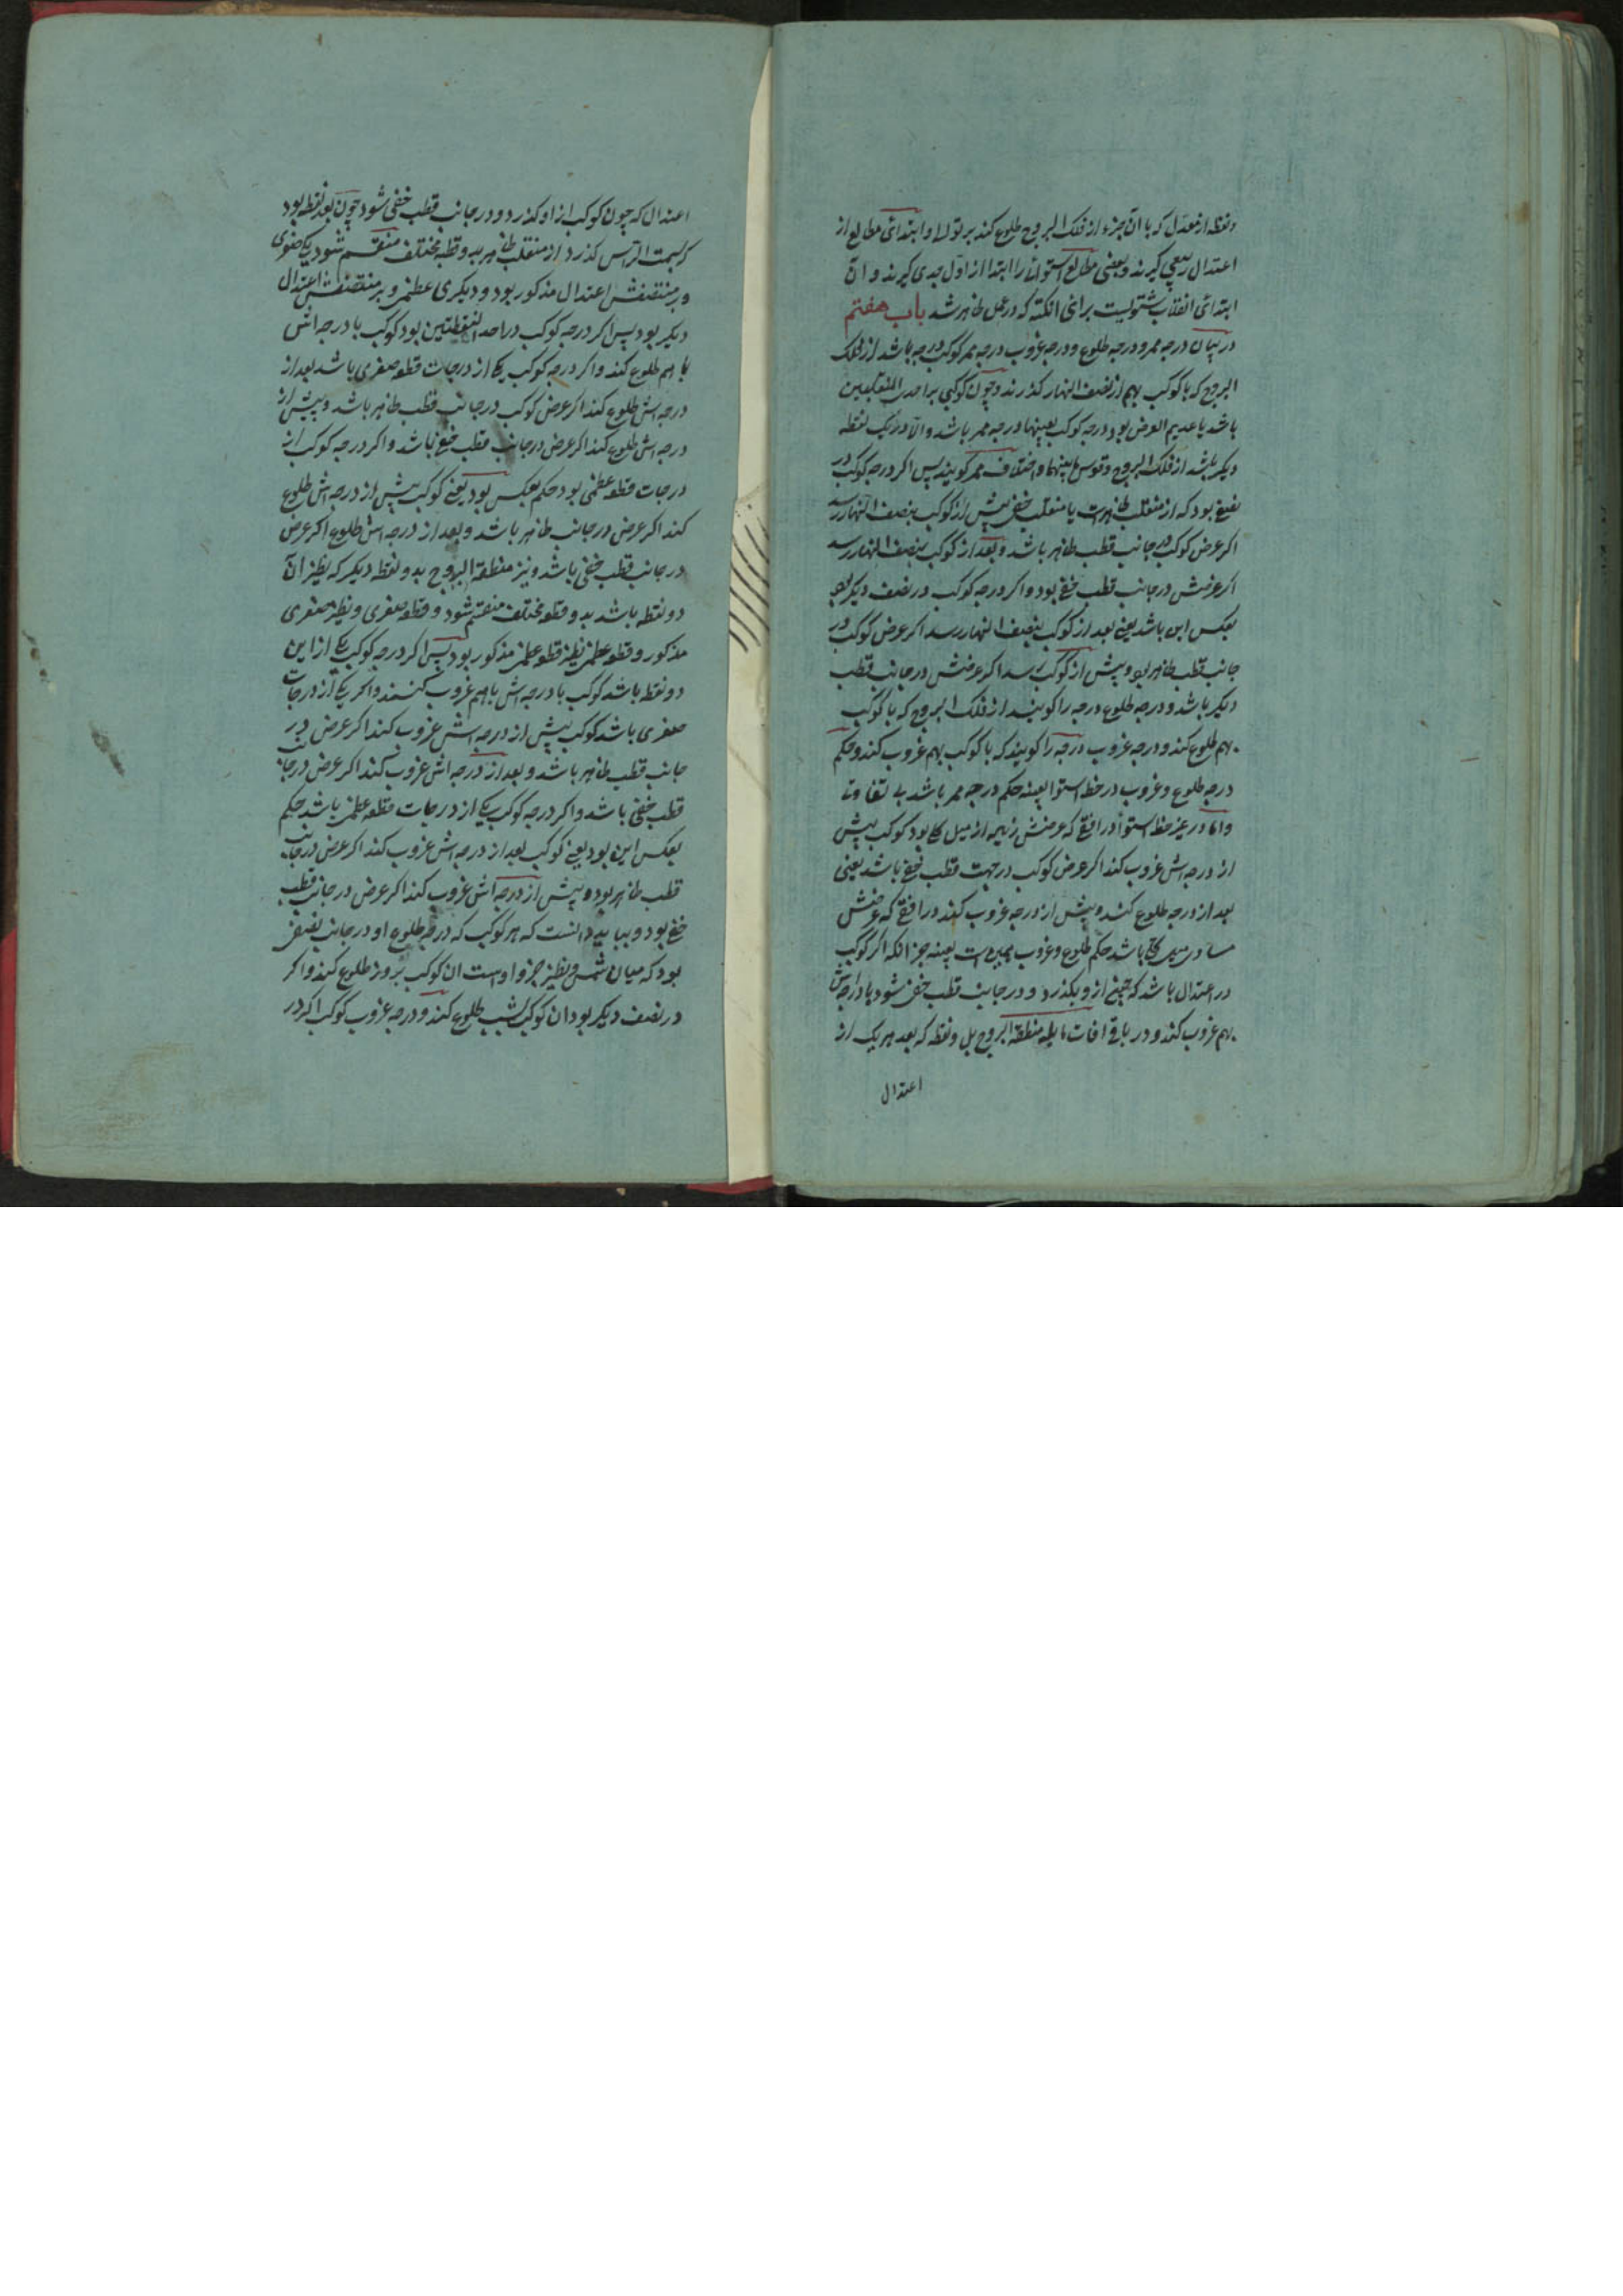 ونقطه از معدّل که با آن جزء از فلک البروج طلوع کند بر توالی و ابتدائی مطالع از
اعتدال ربیعی گیرند و بعضی مطالع استوائی را ابتدا از اوّل جدی گیرند و آن
ابتدائی انقلاب شتویست برائی انکته که در عمل ظاهر شد باب هفتم
در بیان درجه ممر و درجه طلوع و درجه غروب درجه ممر کوکب درجه باشد از فلک
البروج که با کوکب بهم از نصف النهار گذرند و چون کوکبی بر احدی المنقلبین
باشد یا عدیم العرض بود درجه کوکب بعینها درجه ممر باشد والّا در یک نقطه
دیکر باشد از فلک البروج و قوس مابینهما را اختلاف ممر گویند پس اکر درجه کوکب در
نصفی بود که از منقلب ظاهرست یا منقلب خفی پیش از کوکب بنصف النهار رسد
اکر عرض کوکب در جانب قطب ظاهر باشد و بعد از کوکب بنصف النهار رسد
اکر عرضش در جانب قطب خفی بود و اکر درجه کوکب در نصف دیکر بود
بعکس این باشد یعنی بعد از کوکب بنصف النهار رسد اکر عرض کوکب در
جانب قطب ظاهر بود و پیش از کوکب رسد اکر عرضش در جانب قطب
دیکر باشد و درجه طلوع درجه را کویند از فلک البروج که با کوکب
بهم طلوع کند و درجه غروب درجه را کویند که با کوکب بهم غروب کند و حکم
درجه طلوع و غروب در خط استوا بعینه حکم درجه ممر باشد بی تفاوتی
و امّا در غیر خط استوا در افقی که عرضش زیاده از میل کلی بود کوکب پیش
از درجه اش غروب کند اکر عرض کوکب در جهت قطب خفی باشد یعنی
بعد از درجه طلوع کند و پیش از درجه غروب کند و در افقی که عرضش
مساوی میل کلی باشد حکم طلوع و غروب همین است بعینه جز انکه اکر کوکب
در اعتدال باشد که چون از و بکذرد و در جانب قطب خفی شود با درجه اش
بهم غروب کند و در باقی افاق مایله منطقة البروج بدو نقطه که بعد هر یک از
اعتدال
اعتدال که چون کوکب از او کذرد و در جانب قطب خفی شود چون بعد نقطه بود
که بسمت الراس کذرد از منقلب ظاهر بدو قطعه مختلف منقسم شود یکی صغری
و بر منتصفش اعتدال مذکور بود و دیکری عظمی و بر منتصفش اعتدال
دیکر بود پس اکر درجه کوکب در احد النقطتین بود کوکب با درجه اش
با هم طلوع کند و اکر درجه کوکب یکی از درجات قطعه صغری باشد بعد از
درجه اش طلوع کند اکر عرض کوکب در جانب قطب ظاهر باشد و پیش از
درجه اش طلوع کند اکر عرض در جانب قطب خفی باشد و اکر درجه کوکب از
درجات قطعه عظمی بود حکم بعکس بود یعنی کوکب پیش از درجه اش طلوع
کند اکر عرض در جانب ظاهر باشد و بعد از درجه اش طلوع اکر عرض
در جانب قطب خفی باشد و نیز منطقة البروج بدو نقطه دیکر که نظیر آن
دو نقطه باشد بدو قطعه مختلف منقسم شود و قطعه صغری و نظیر صغری
مذکور و قطعه عظمی نظیر قطعه عظمی مذکور بود پس اکر درجه کوکب یکی از این
دو نقطه باشد کوکب با درجه اش باهم غروب کنند و اکر یکی از درجات
صغری باشد کوکب پیش از درجه اش غروب کند اکر عرض در
جانب قطب ظاهر باشد و بعد از درجه اش غروب کند اکر عرض در جانب
قطب خفی باشد و اکر درجه کوکب یکی از درجات قطعه عظمی باشد حکم
بعکس این بود یعنی کوکب بعد از درجه اش غروب کند اکر عرض در جانب
قطب ظاهر بود و پیش از درجه اش غروب کند اکر عرض در جانب قطب
خفی بود و بباید دانست که هر کوکب که درجه طلوع او در جانب نصفی
بود که میان شمس و نظیر جزو اوست ان کوکب بروز طلوع کند و اکر
در نصف دیکر بود ان کوکب بشب طلوع کند و درجه غروب کوکب اکر در